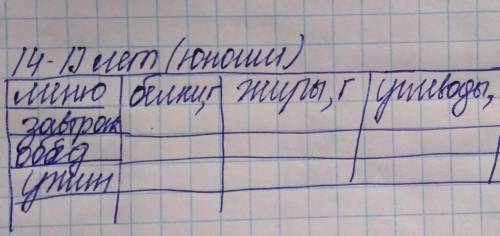 14-17 лет (юноши)
меню белки,г жиры, г углеводы,
завтрак
обед
ужин